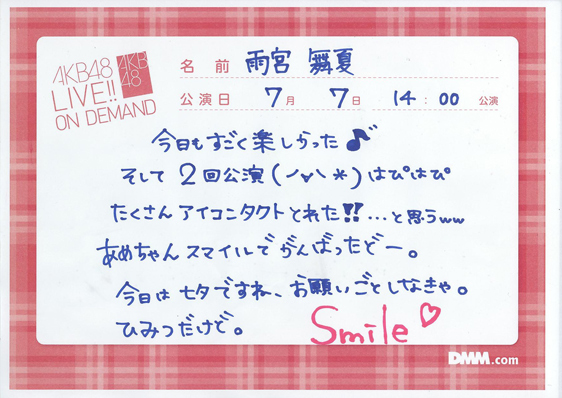 AKB48
LIVE!!
ON DEMAND
AKB
48
名前 雨宮 舞夏
公演日 7月 7日 14:00 公演
今日もすごく楽しかった♪
そして2回公演(ハ▽ハ*)はぴはぴ
たくさんアイコンタクトとれた!!...と思うww
あめちゃんスマイルでがんばったどー。
今日は七夕ですね、お願いごとしなきゃ。
ひみつだけど。
Smile♡
DMM.com